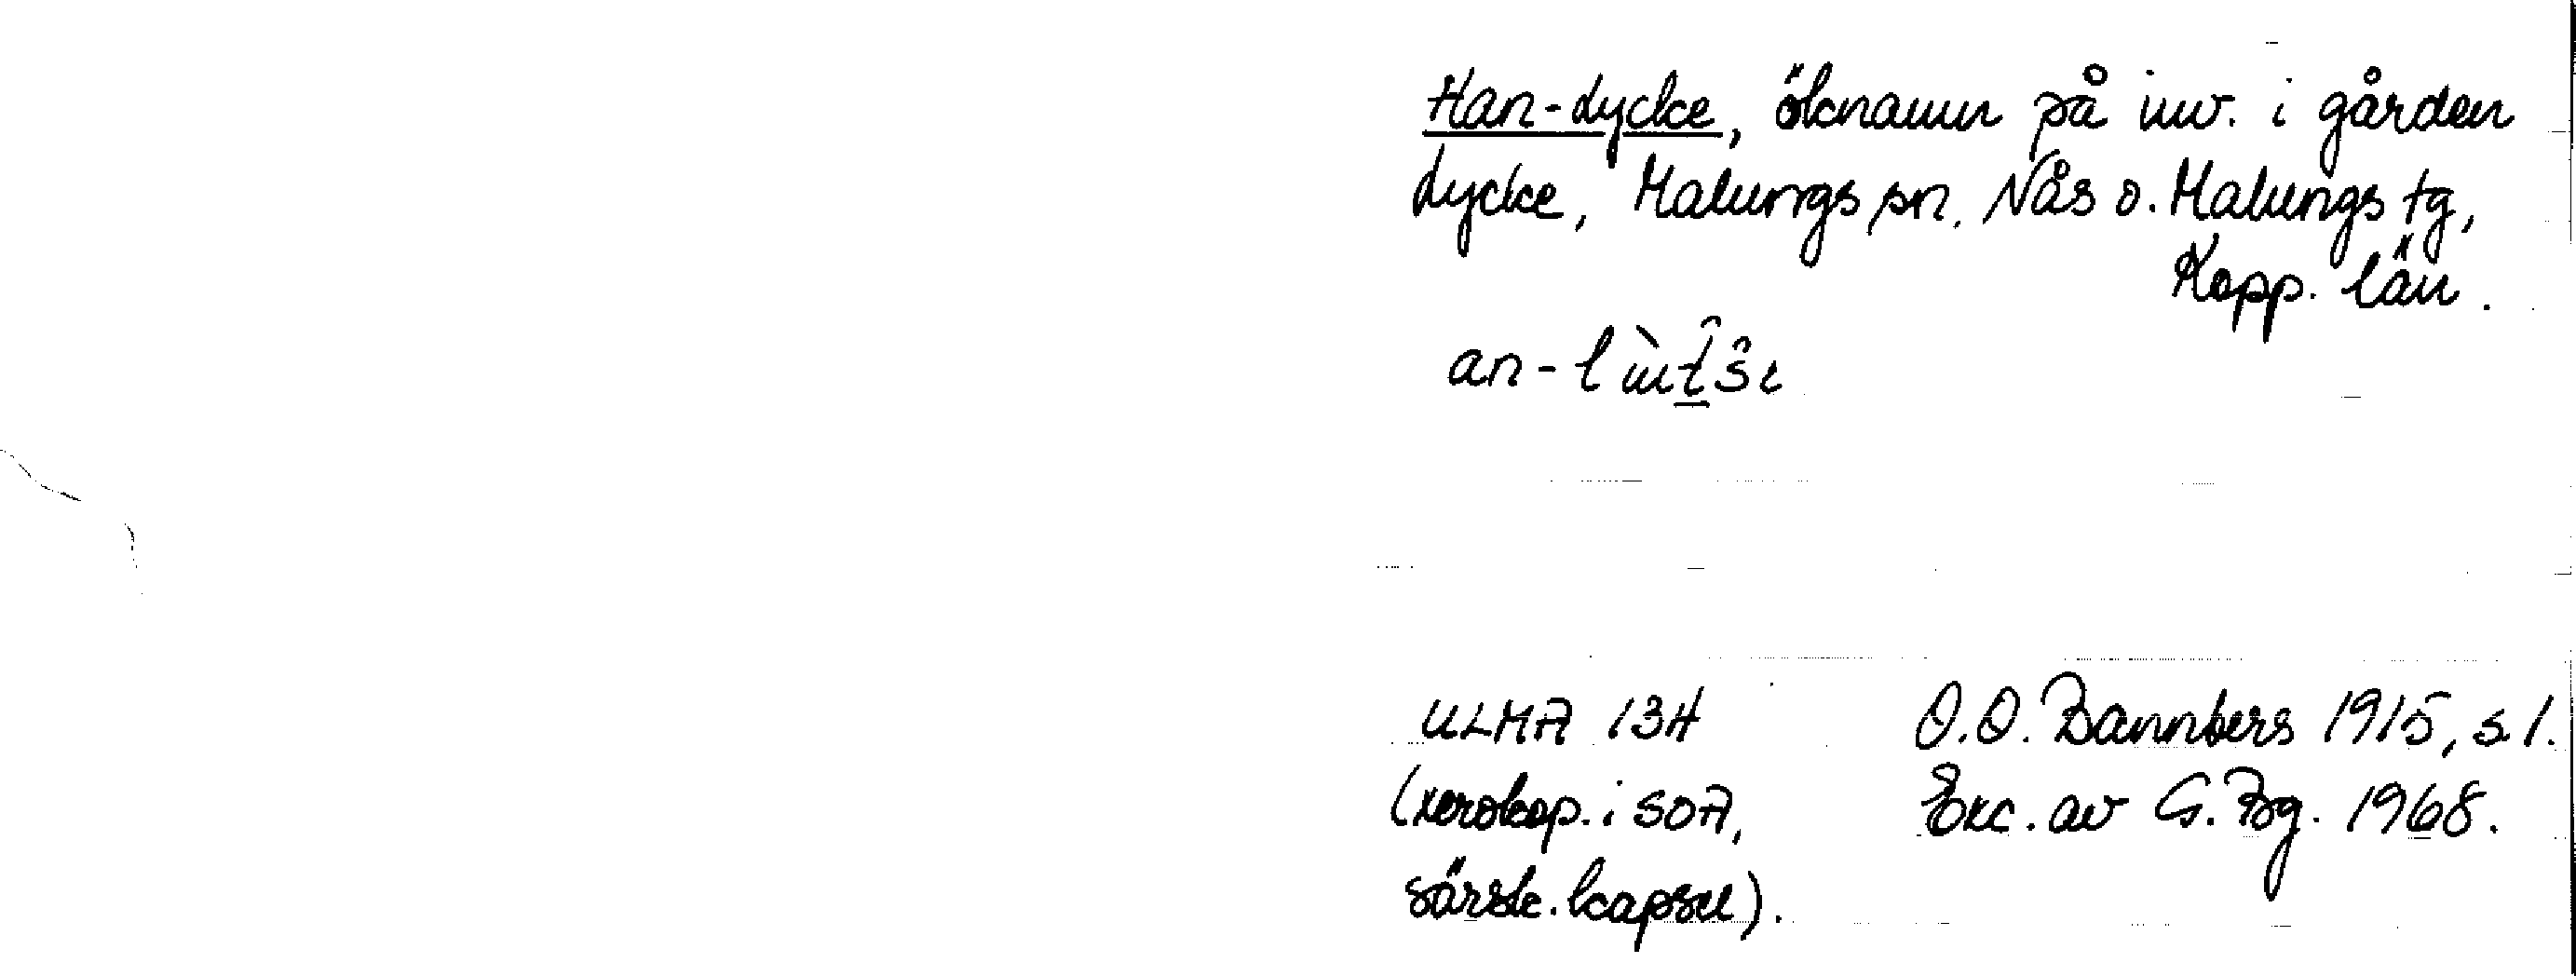 Han-Lycke, öknamn på inv. i gården
Lycke, Malungs sn. Nås o. Malungs tg,
Kopp. län.
an-l
ULMA 134 O.O. Bannbers 1915, s 1.
(xerokop. i SOA, Exc. av G. Bg. 1968.
särsk. kapsel).